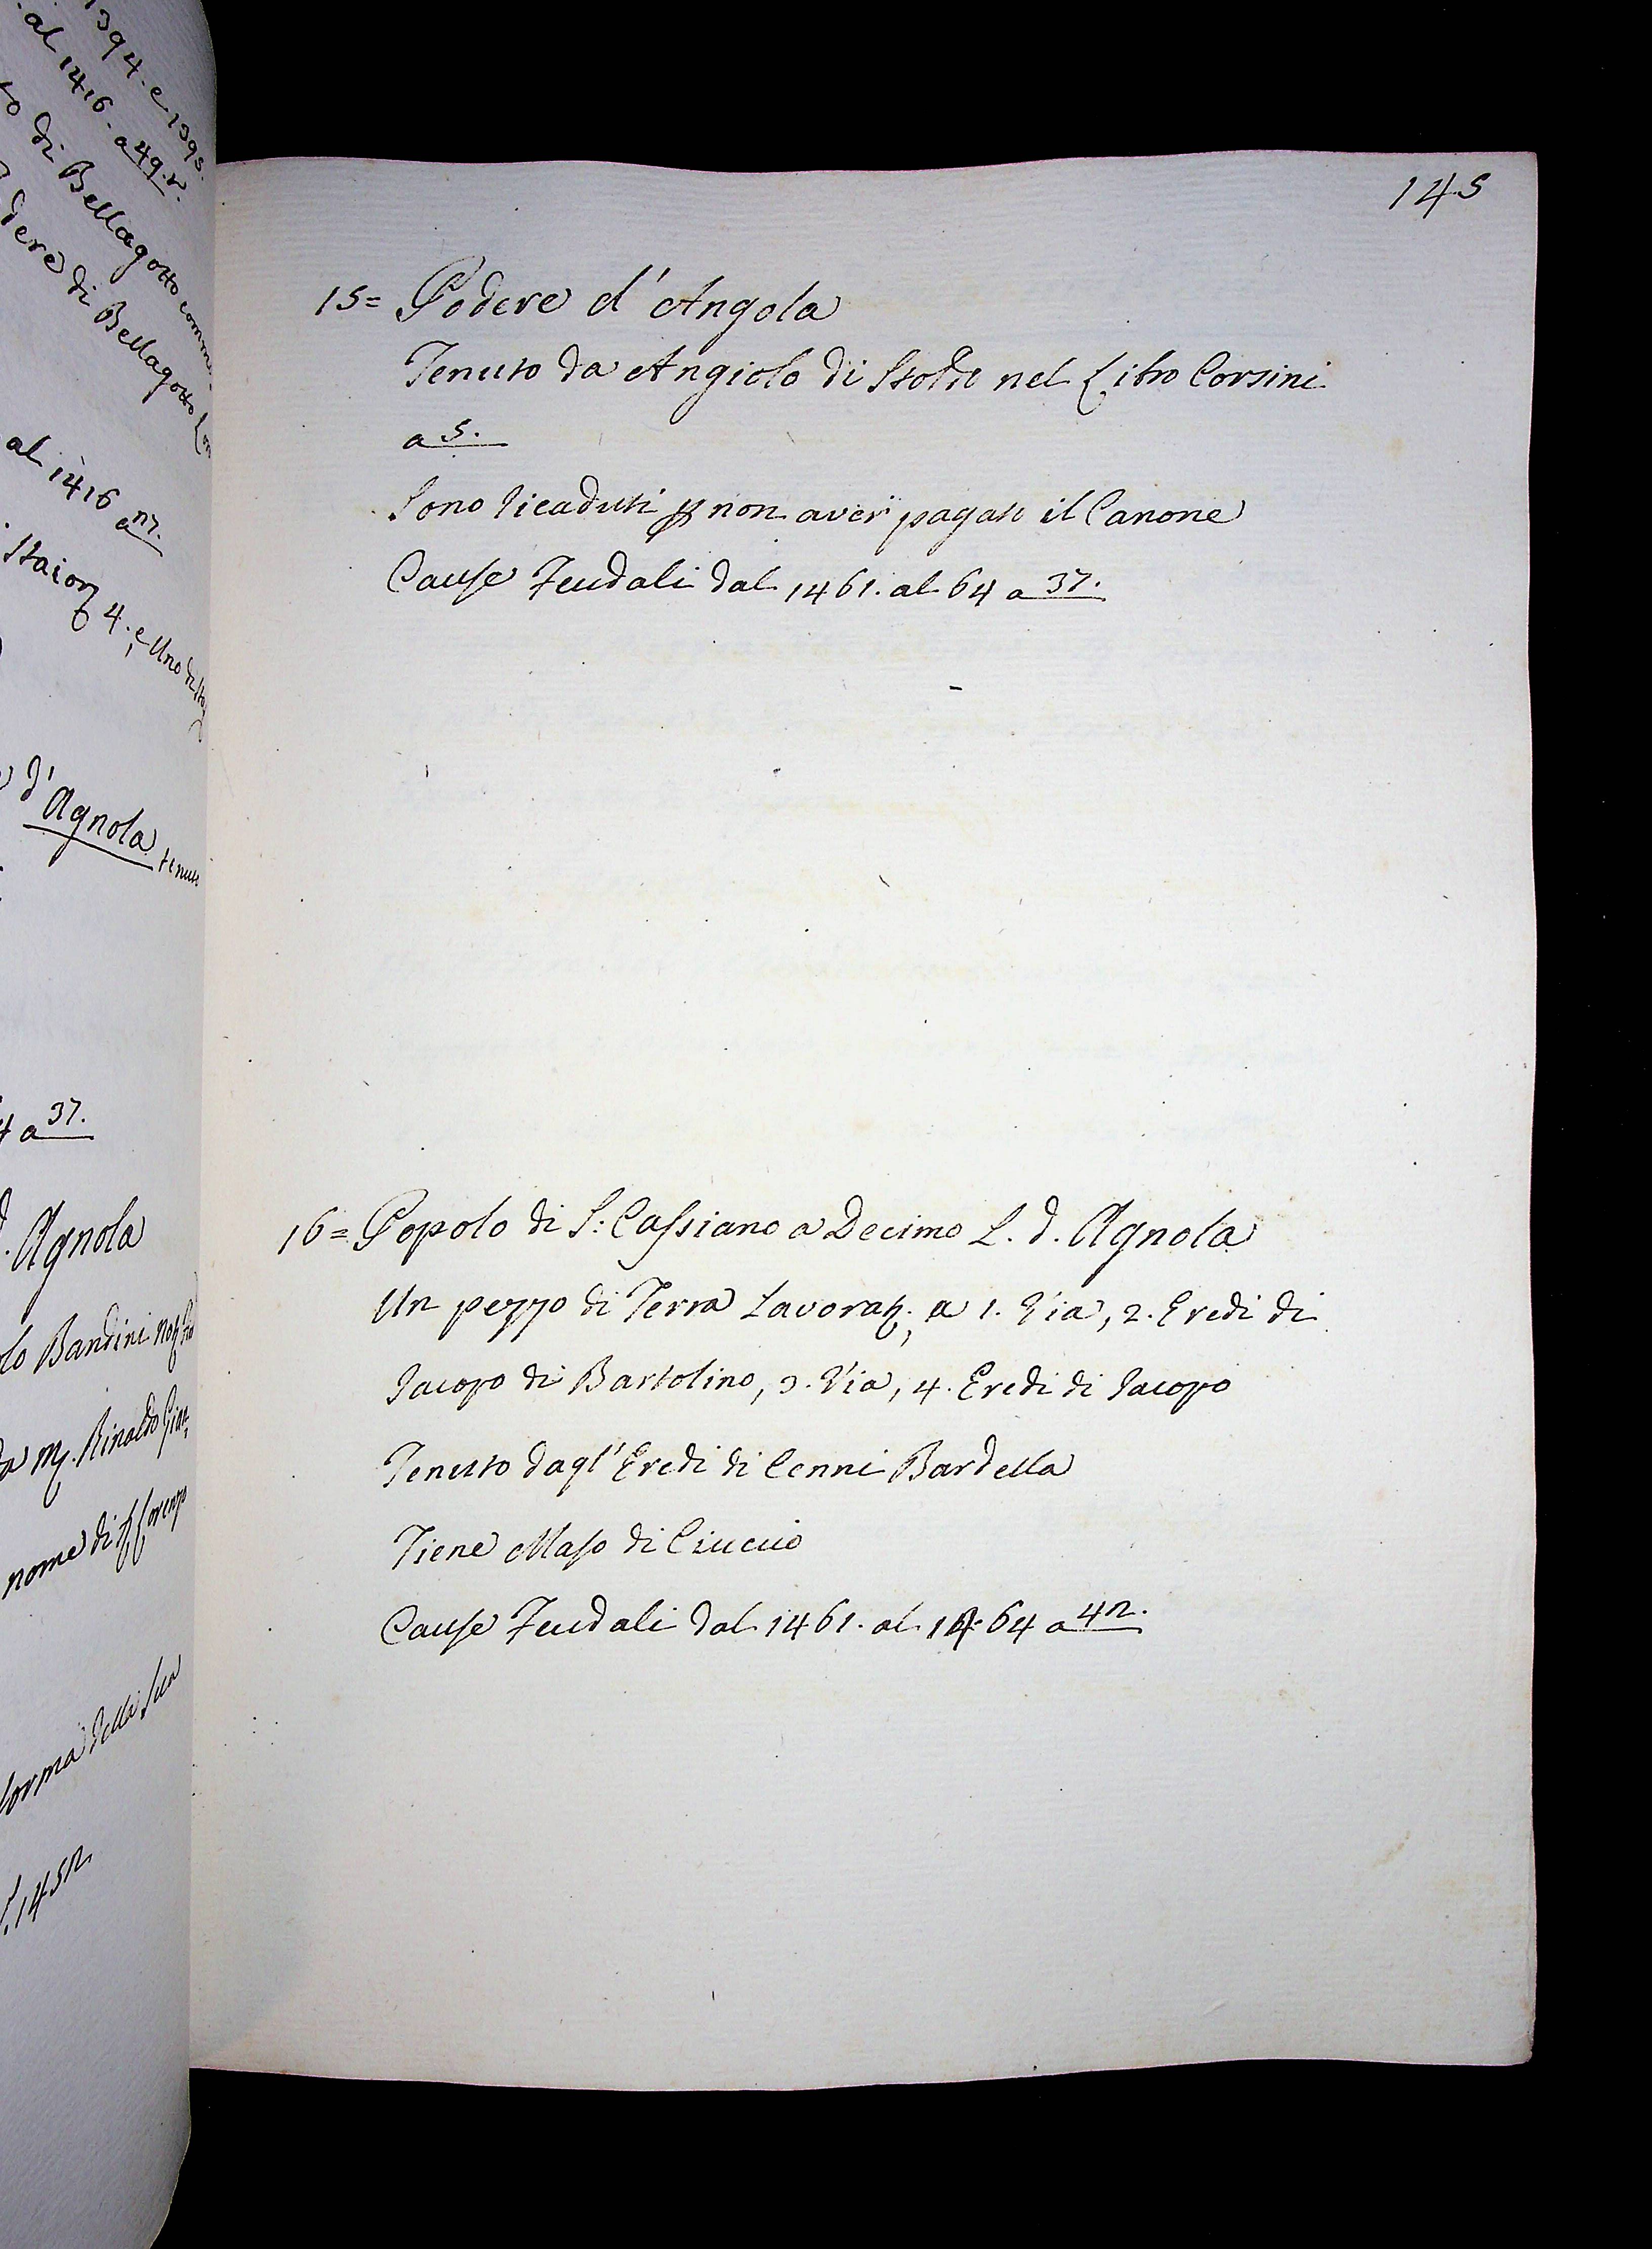 1394. e 1395.
al 1416. a 49. r.
di Bellagotto
dere di Bellagotto
al 1416 a
Staior 4. e Uno di
d' Agnola tenuto
a 37.
d. Agnola
Bandini
Rinaldo
nome di Lorenzo
forma della sua
145
15= Podere d' Angola
Tenuto da Angiolo di Stoldo nel Libro Corsini
a 5.
Sono ricaduti p non aver pagato il Canone
Cause Feudali dal 1461. al 64 a 37.
16= Popolo di S: Cassiano a Decimo L. d. Agnola
Un pezzo di Terra Lavorat; a 1. Via, 2. Eredi di
Jacopo di Bartolino, 3. Via, 4. Eredi di Jacopo
Tenuto dagl' Eredi di Cenni Bardella
Tiene Maso di Ciuccio
Cause Feudali dal 1461. al 1464 a 42.